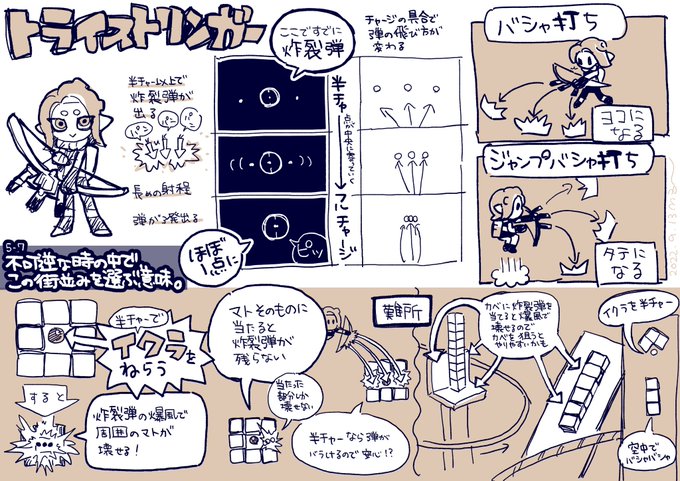 トライストリンガー
ここですでに
炸裂弾
チャージの具合で
弾の飛び方が
変わる
半チャージ以上で
炸裂弾が
出る
パン
パン
パン
長めの射程
弾が3発出る
半チャ
点が中央に寄っていく
フルチャージ
ほぼ
1点に
ピッ
バシャ打ち
ヨコに
なる
ジャンプバシャ打ち
タテに
なる
5-7
不可逆な時の中で、
この街並みを選ぶ意味。
半チャージで
イクラを
ねらう
すると
炸裂弾の爆風で
周囲のマトが
壊せる!
マトそのものに
当たると
炸裂弾が
残らない
当たった
部分しか
壊せない
半チャージなら弾が
バラけるので安心!?
難所
カベに炸裂弾を
当てると爆風で
壊せるので
カベを狙うと
やりやすいかも
イクラを半チャー
空中で
バシャバシャ